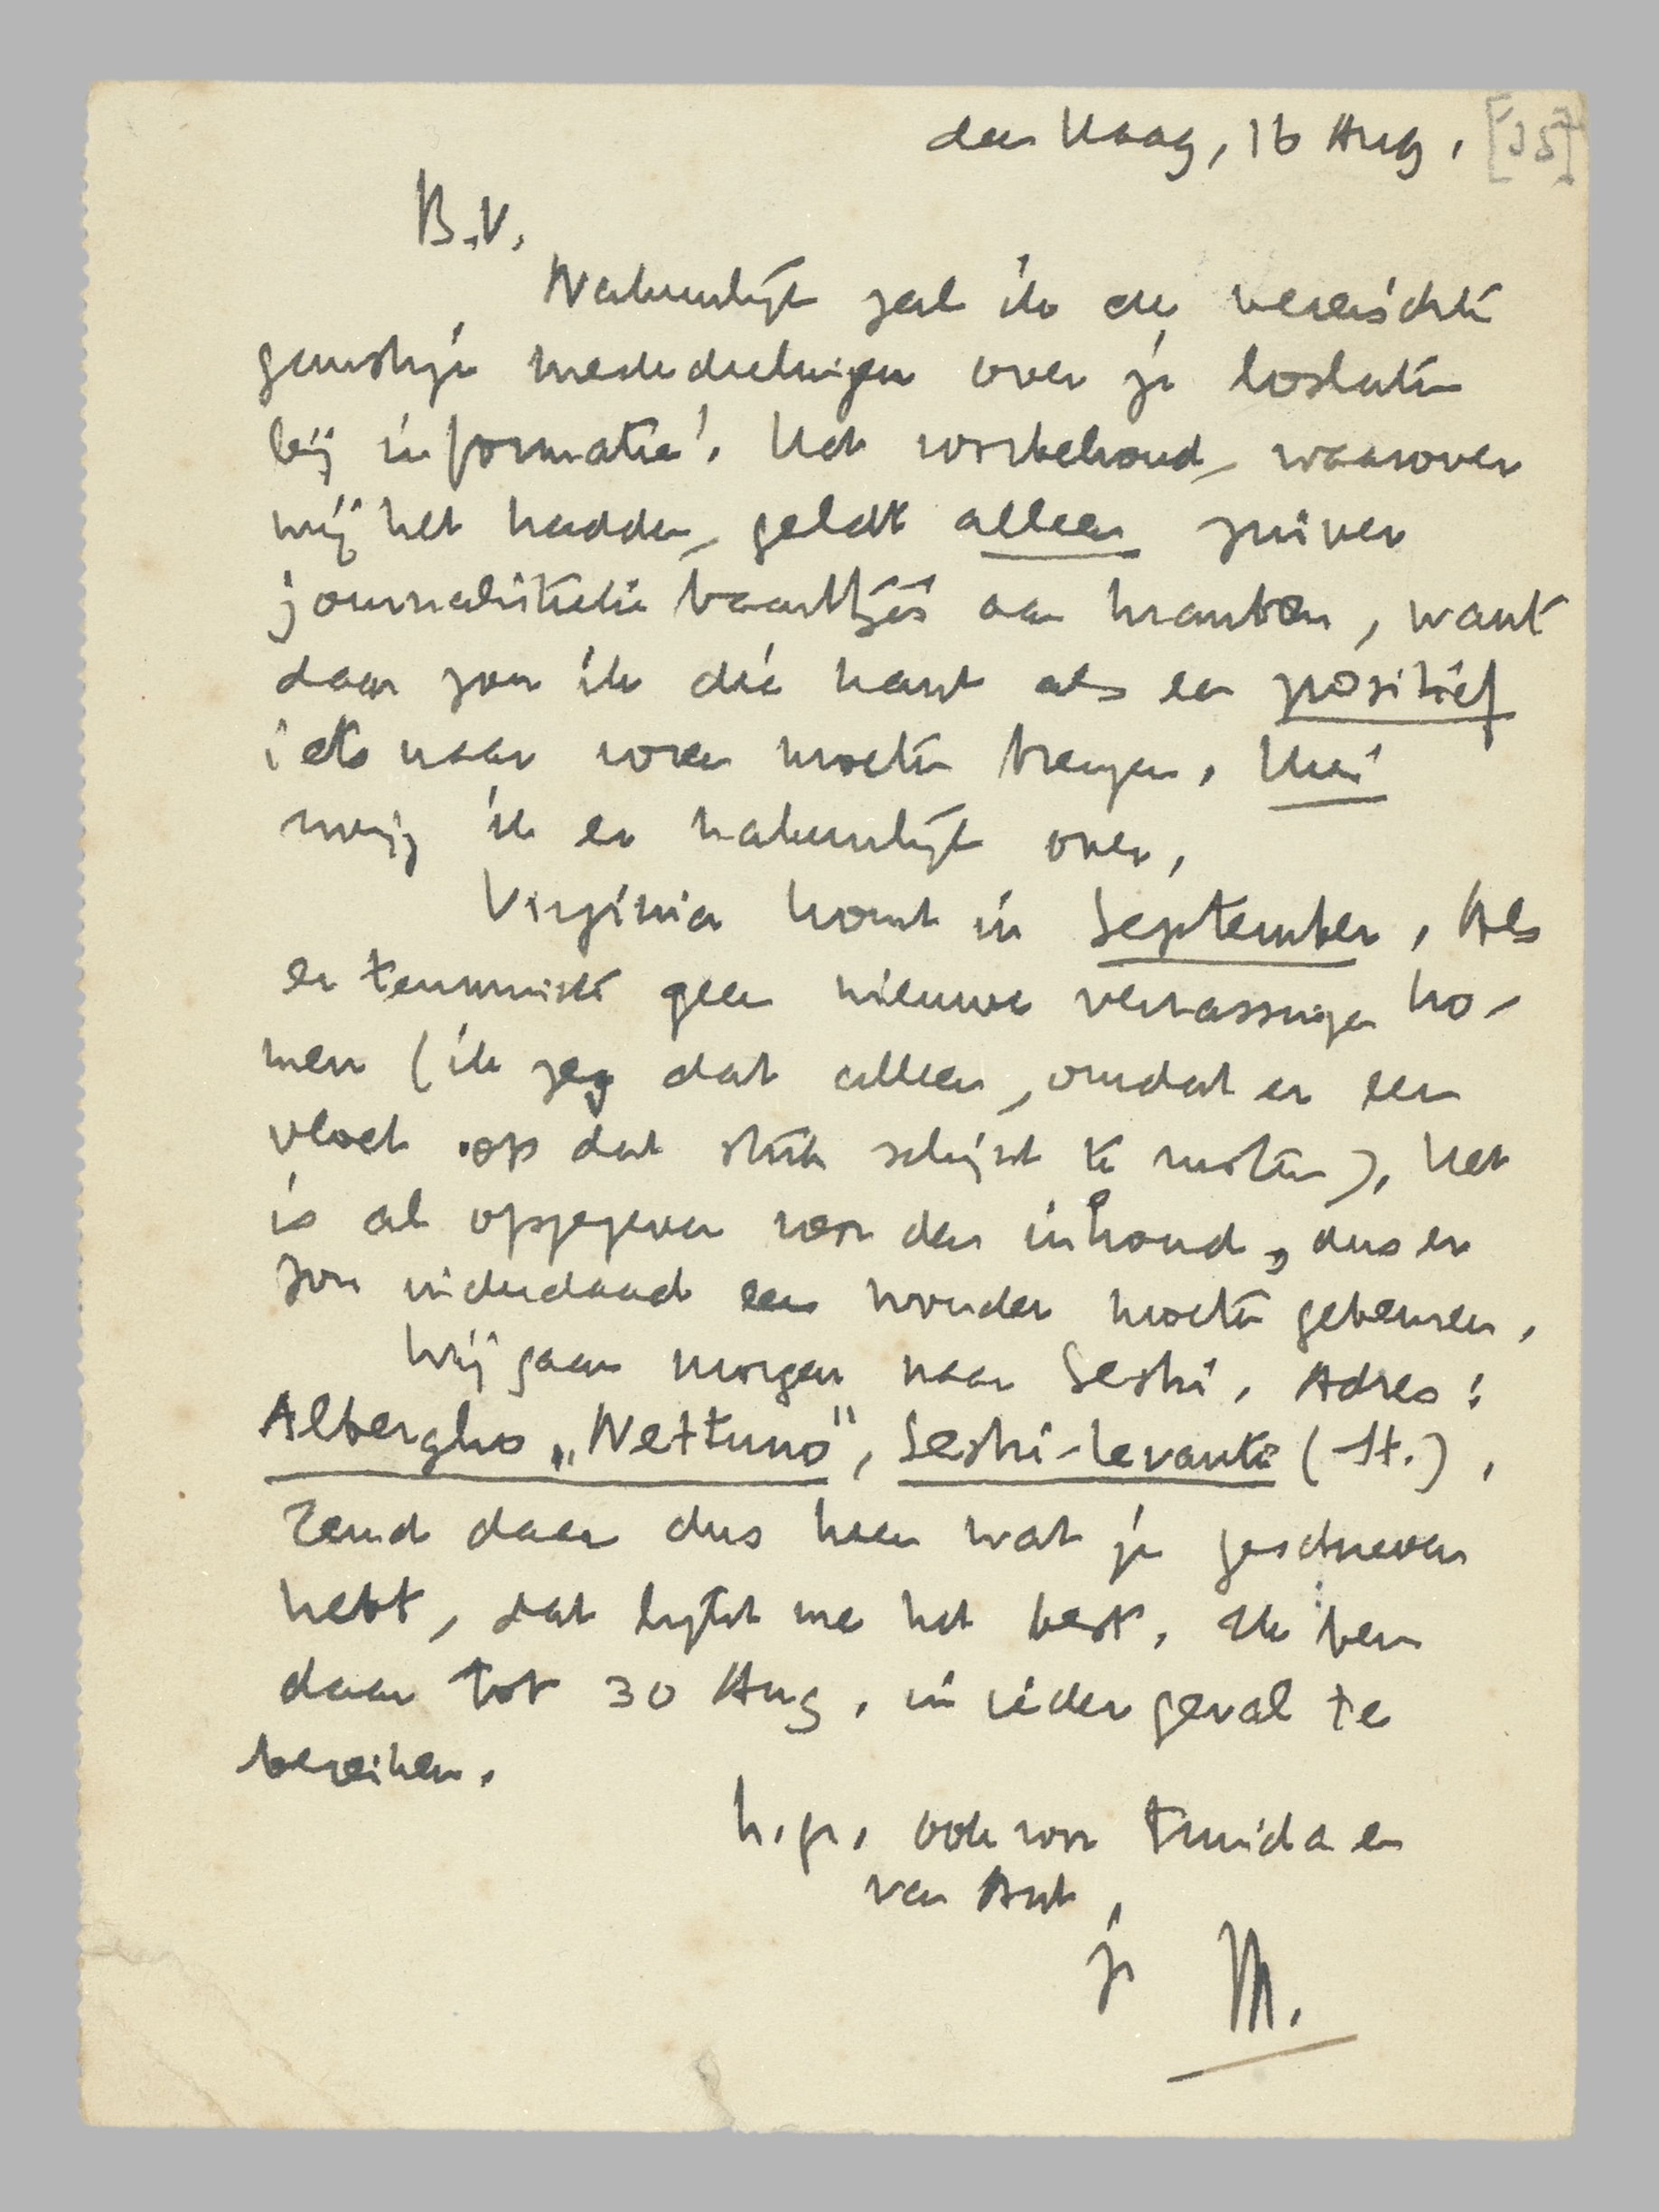 den Haag, 16 Aug. [35]
B.V.
Natuurlijk zal ik de vereischte
gunstige mededeelingen over je loslaten
bij informatie! Het voorbehoud, waarover
wij het hadden, geldt alleen zuiver
journalistieke baantjes aan kranten, want
daar zou ik die kant als een positief
iets naar voren moeten brengen. Hier
zwijg ik er natuurlijk over.
Virginia komt in September. Als
er tenminste geen nieuwe verrassingen ko-
men (ik zeg dat alleen, omdat er een
vloek op dat stuk schijnt te rusten). Het
is al opgegeven voor den inhoud, dus er
zou inderdaad een wonder moeten gebeuren.
Wij gaan morgen naar Sestri. Adres:
Albergho „Nettuno", Sestri-Levante (It.).
Zend daar dus heen wat je geschreven
hebt, dat lijkt me het best. Ik ben
daar tot 30 Aug. in ieder geval te
bereiken.
h.gr. ook voor Truida en
van Ant,
je M.